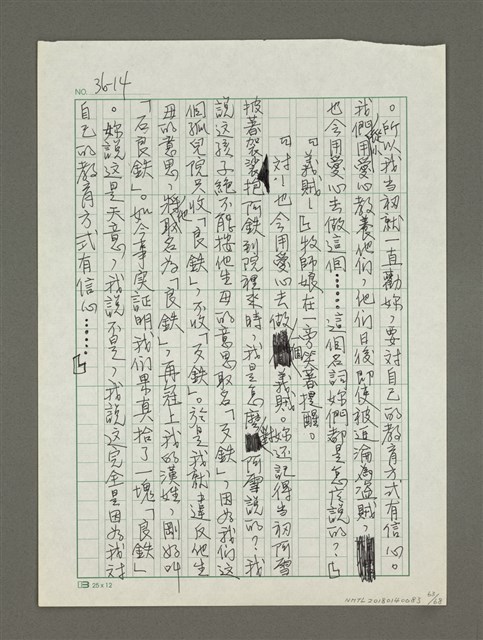 NO. 36-14
。所以我当初就一直勸妳，要对自己的教育方式有信心。
我們從小用愛心教養他們，他們日後即使被迫淪為盜賊，
也会用愛心去做這個……這個名詞妳們都是怎麼說的？」
「義賊！」牧師娘在一旁笑著提醒。
「对！也会用愛心去做個義賊。妳还記得当初阿雪
披著袈裟抱阿鉄到院裡來時，我是怎麼對阿雪說的？我
說这孩子絕不能按他生母的意思取名「歹鉄」，因為我们这
個孤兒院只收「良鉄」，不收「歹鉄」。於是我就违反他生
母的意思，將他取名为「良鉄」，再冠上我的漢姓，剛好叫
「石良鉄」。如今事実証明我们果真拾了一塊「良鉄」
。妳說这是天意，我說不是，我說这完全是因為我对
自己的教育方式有信心……」
25 x 12
NMTL20180140083
68